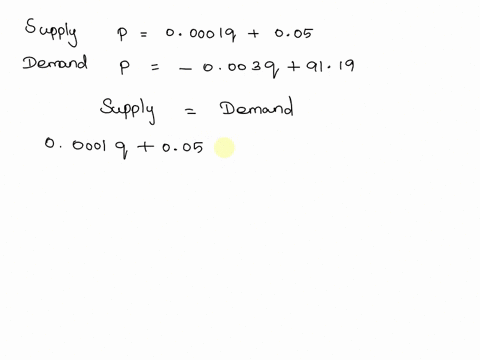 Supply p = 0.0001q + 0.05
Demand p = - 0.003q + 91.19
Supply = Demand
0.0001 q + 0.05